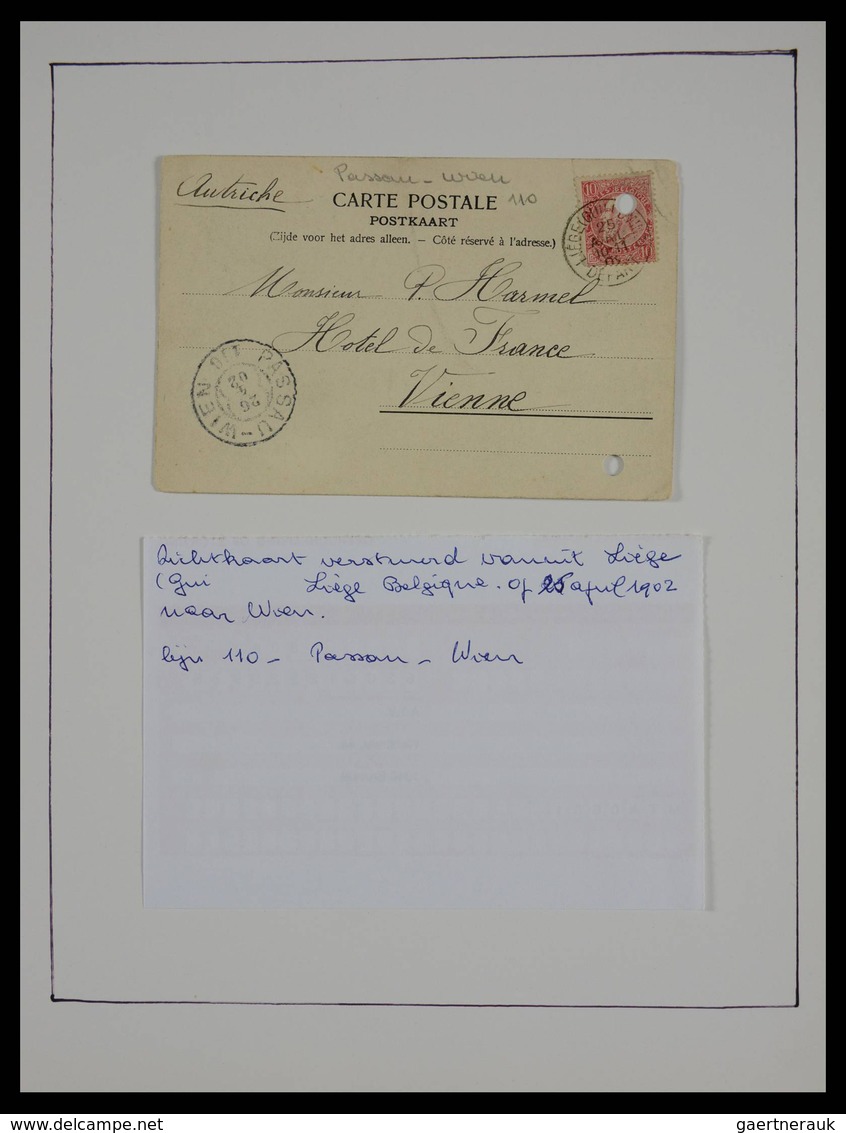 Passau - Wien
110
Autriche
CARTE POSTALE
POSTKAART
(Zijde voor het adres alleen. - Côté réservé à l'adresse.)
10
LIÈGE (GUILLEMINS)
25
DÉPART
Monsieur P. Harmel
Hotel de France
Vienne
PASSAU - WIEN
26
4
02
Zichtkaart verstuurd vanuit Liège
(Gui Liège Belgique. op 25 april 1902
naar Wien.
lijn 110 - Passau - Wien
the delcampe.net
gaertnerauk